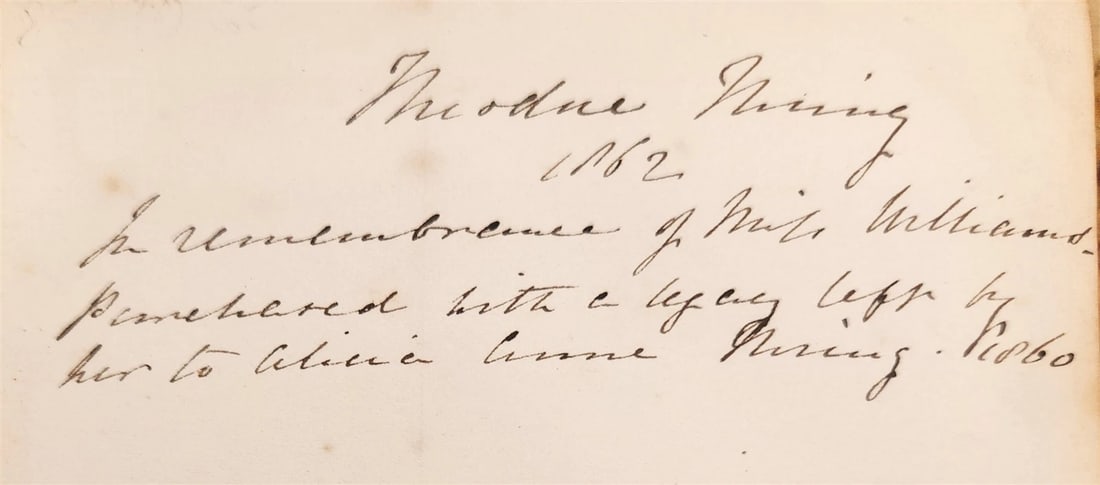 Theodore Thring
1862
In remembrance of Miss Williams-
purchased with a legacy left by
her to Alicia Anne Thring. 1860